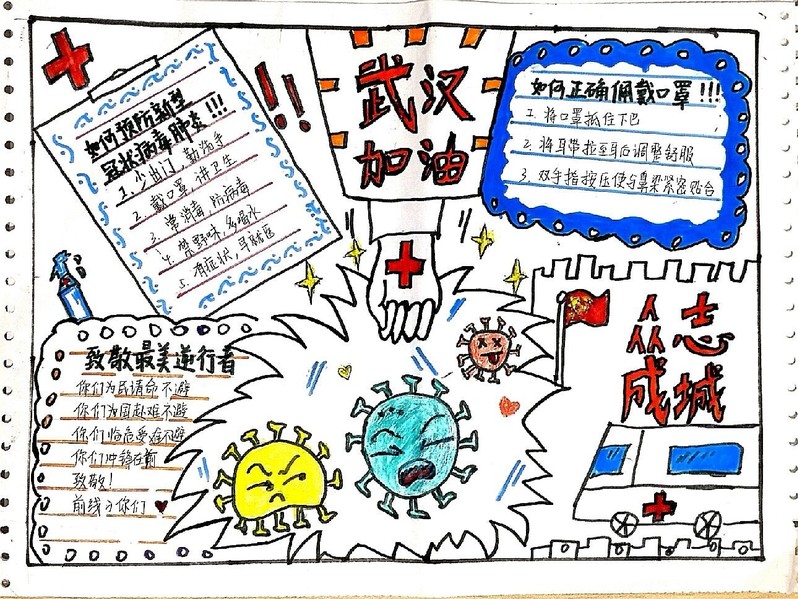 如何预防新型
冠状病毒肺炎!!!
1. 少出门，勤洗手
2. 戴口罩，讲卫生
3. 常消毒，防病毒
4. 禁野味，多喝水
5. 有症状，早就医
!!
武汉
加油
如何正确佩戴口罩!!!
1. 将口罩抵住下巴
2. 将耳带拉至耳后调整舒服
3. 双手指按压使与鼻梁紧密贴合
致敬最美逆行者
你们为民请命不避
你们为国赴难不避
你们临危受难不避
你们冲锋在前
致敬!
前线的你们
众志
成城